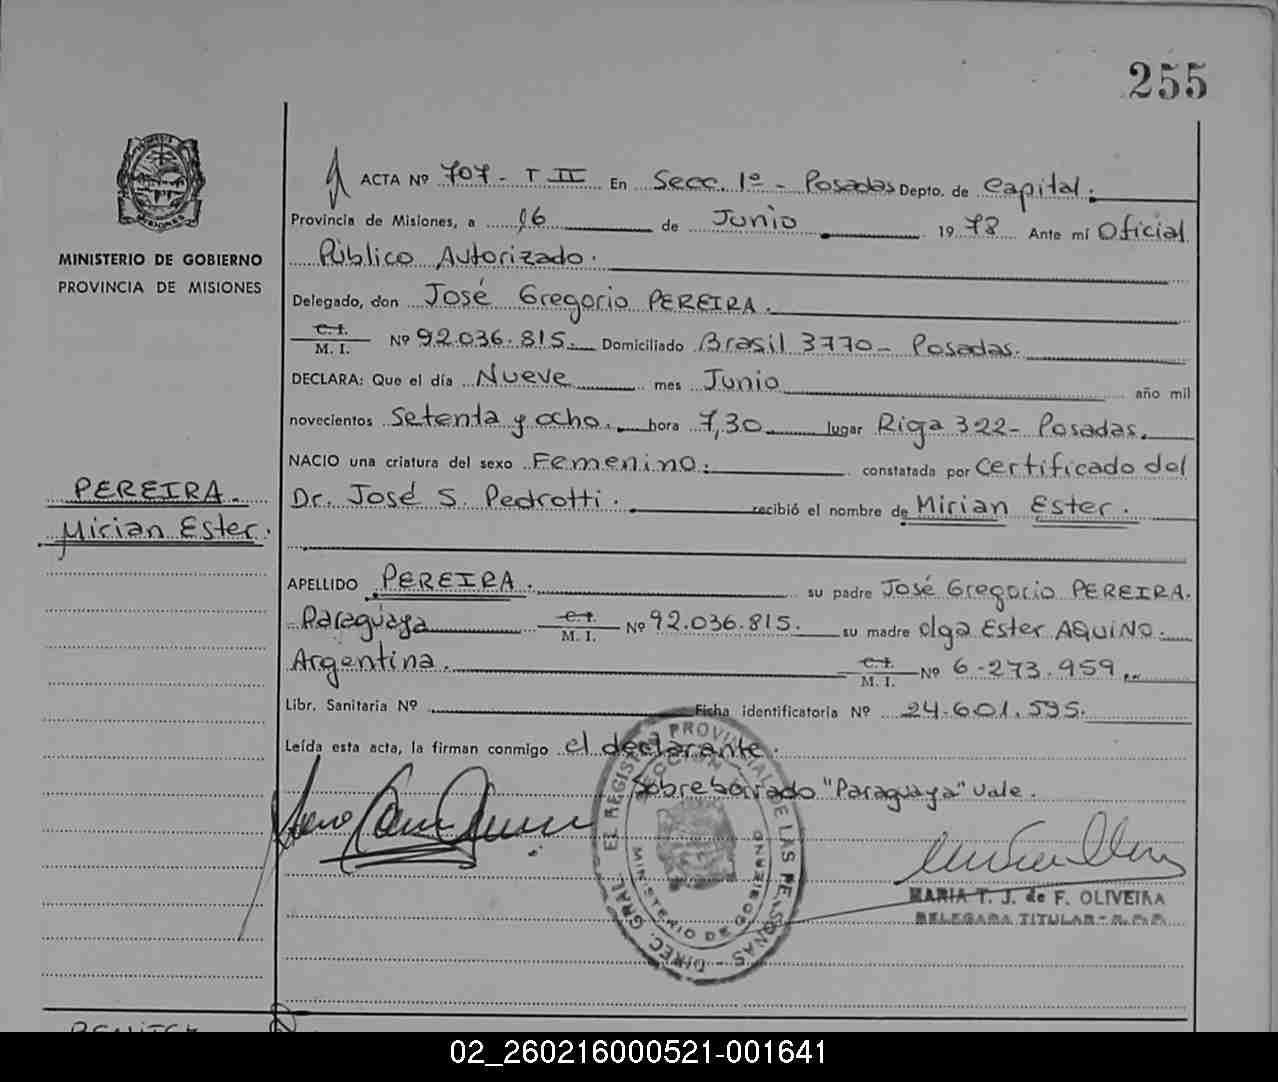 255
ACTA Nº 707 - T II En Secc. 1º - Posadas Depto. de Capital.
Provincia de Misiones, a 16 de Junio 1978 Ante mí Oficial
Público Autorizado.
Delegado, don José Gregorio PEREIRA.
C. I. / M. I. Nº 92.036.815. Domiciliado Brasil 3770 - Posadas.
DECLARA: Que el día Nueve mes Junio año mil
novecientos Setenta y ocho. hora 7,30 lugar Riga 322 - Posadas.
NACIO una criatura del sexo Femenino. constatada por Certificado del
Dr. José S. Pedrotti. recibió el nombre de Mirian Ester.
APELLIDO PEREIRA. su padre José Gregorio PEREIRA.
Paraguaya C. I. / M. I. Nº 92.036.815. su madre Olga Ester AQUINO.
Argentina. C. I. / M. I. Nº 6.273.959
Libr. Sanitaria Nº Ficha identificatoria Nº 24.601.595.
Leída esta acta, la firman conmigo el declarante.
Sobreborrado "Paraguaya" vale.
MINISTERIO DE GOBIERNO
PROVINCIA DE MISIONES
PEREIRA.
Mirian Ester.
DIREC. GRAL. EL REGISTRO PROVINCIAL DE LAS PERSONAS
SECCION
MINISTERIO DE GOBIERNO
MARIA T. J. de F. OLIVEIRA
DELEGADA TITULAR - R.P.P.
02_260216000521-001641